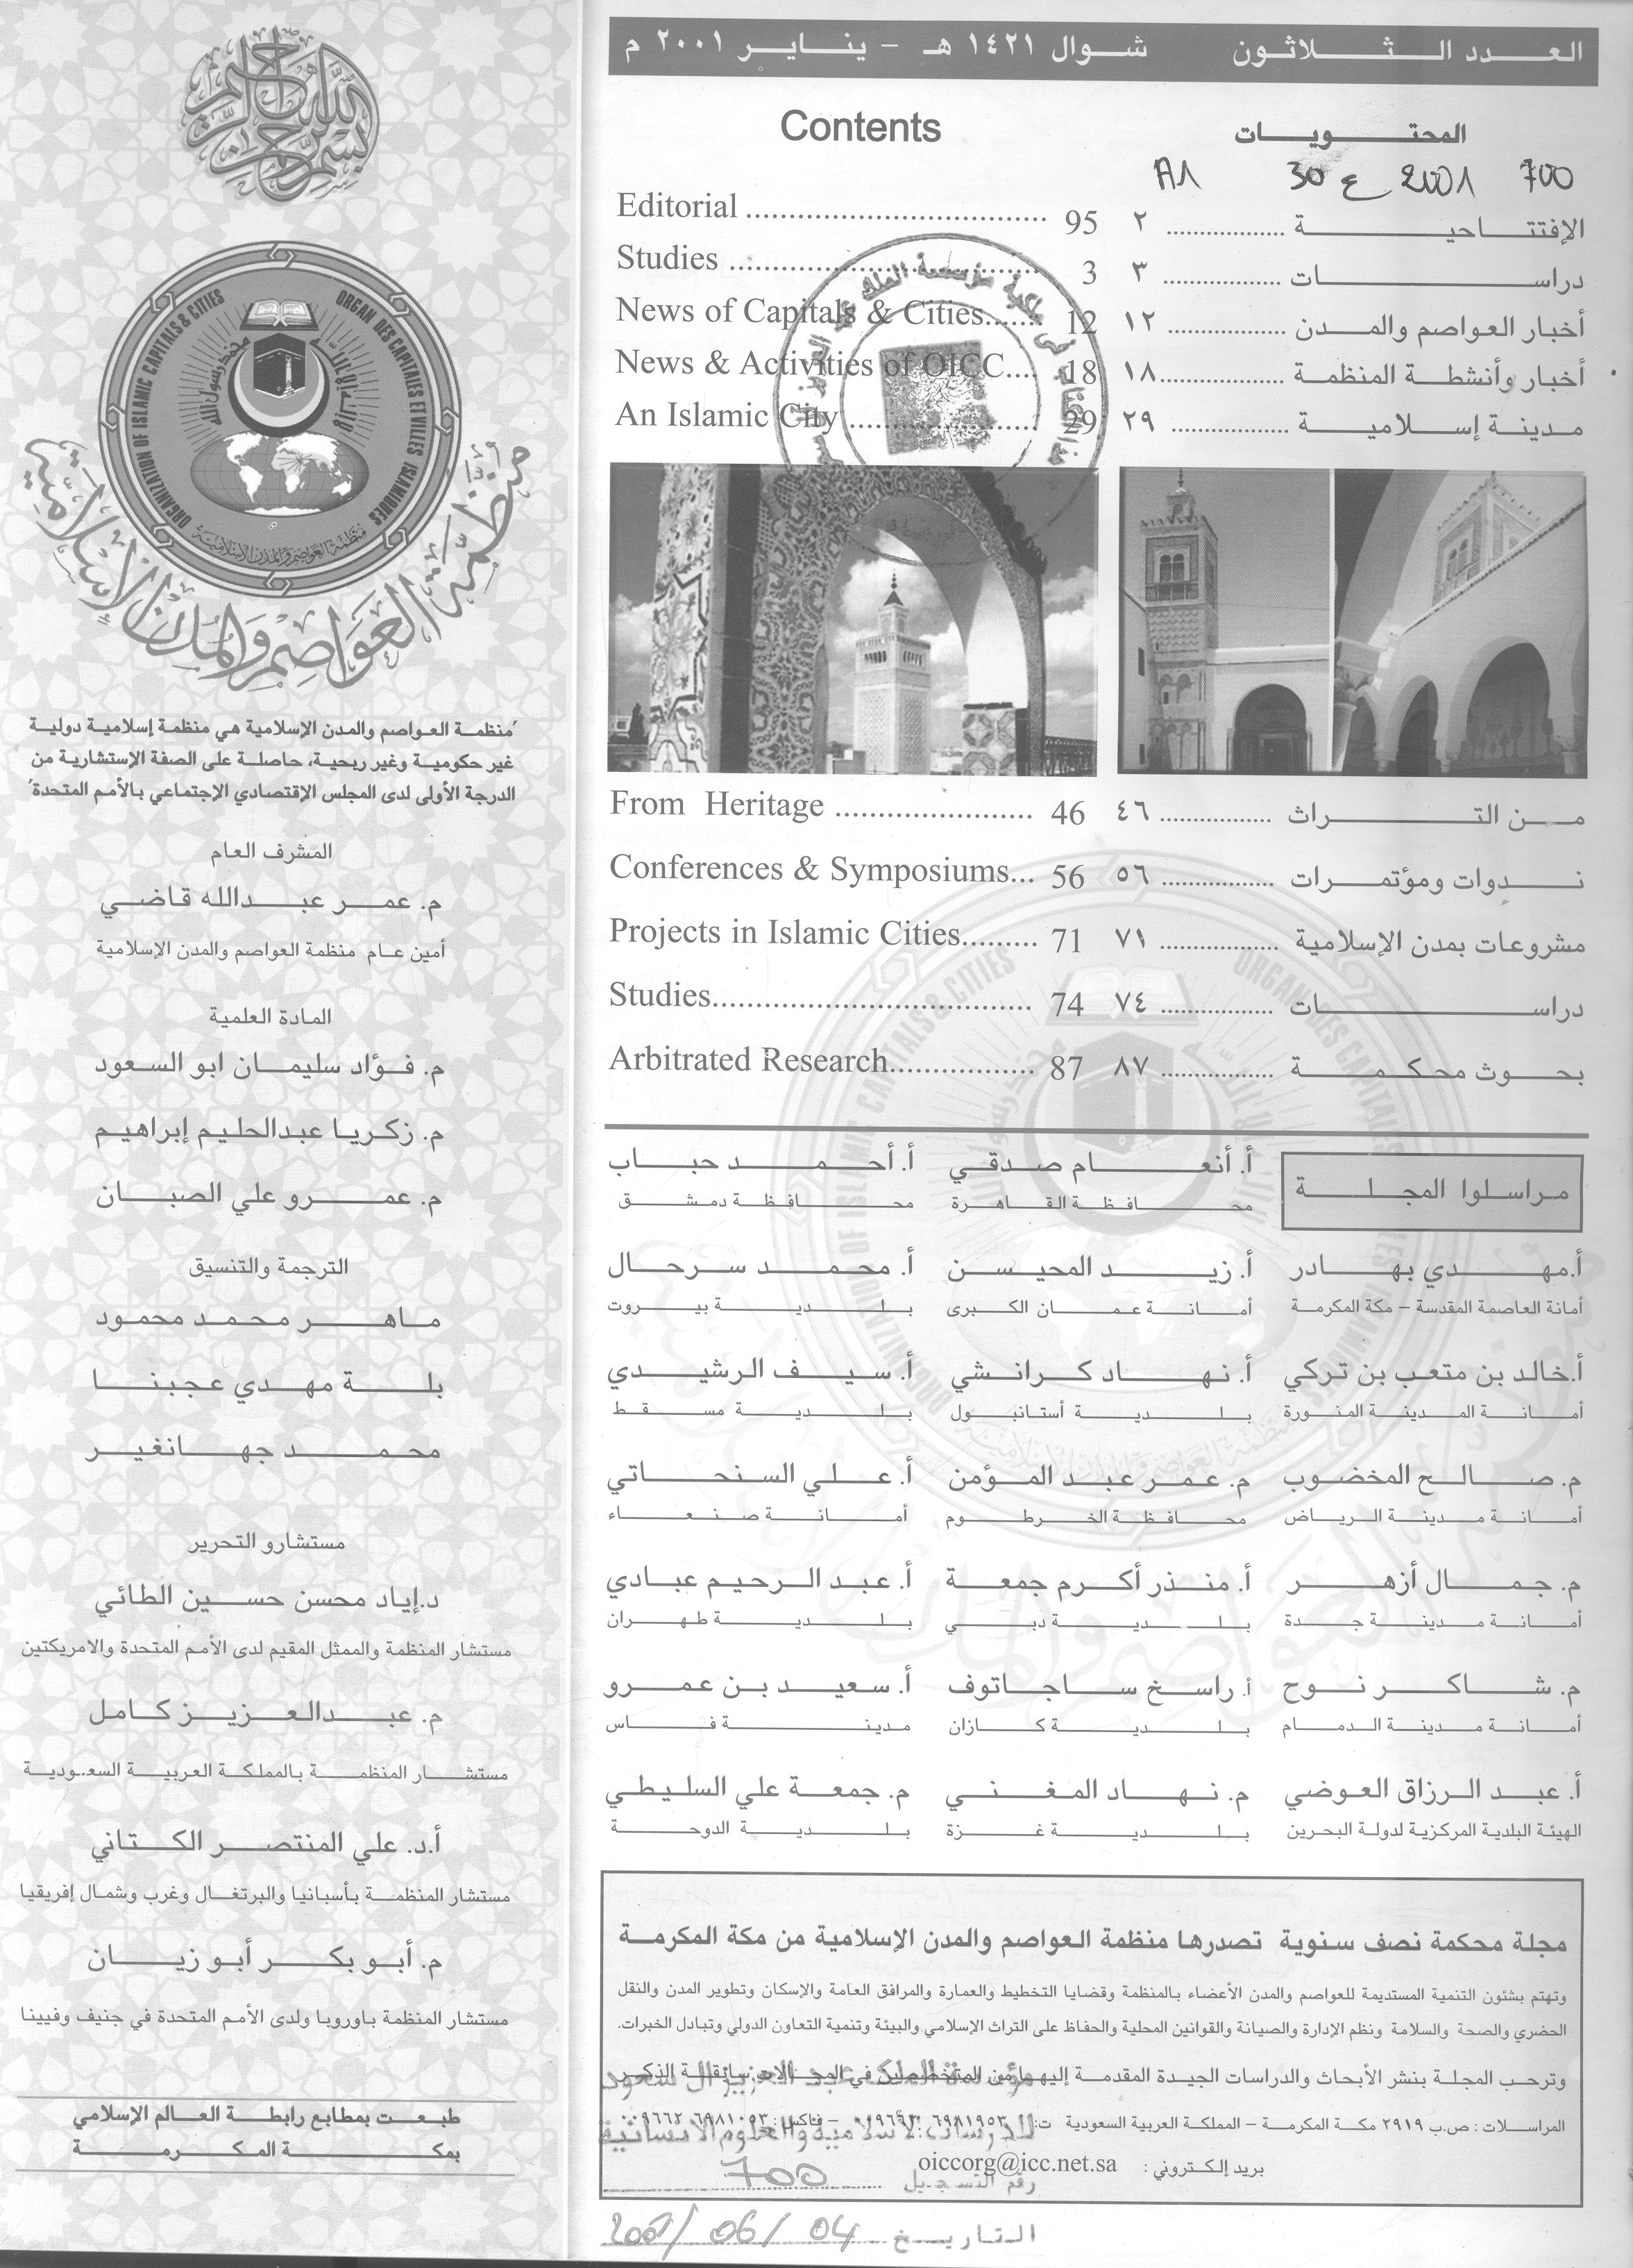 العدد الثلاثون شوال ١٤٢١ هـ - يناير ٢٠٠١ م
Contents
المحتويات
A1 30 ع 2001 700
Editorial .................................. 95 ٢ ................. الإفتتاحية
Studies .................................. 3 ٣ ................. دراسات
News of Capitals & Cities....... 12 ١٢ ................. أخبار العواصم والمدن
News & Activities of OICC.... 18 ١٨ ................. أخبار وأنشطة المنظمة
An Islamic City ...................... 29 ٢٩ ................. مدينة إسلامية
From Heritage ....................... 46 ٤٦ ................. من التراث
Conferences & Symposiums... 56 ٥٦ ................. ندوات ومؤتمرات
Projects in Islamic Cities......... 71 ٧١ ................. مشروعات بمدن الإسلامية
Studies..................................... 74 ٧٤ ................. دراسات
Arbitrated Research................. 87 ٨٧ ................. بحوث محكمة
مراسلوا المجلة
أ. أنعام صدقي أ. أحمد حباب
محافظة القاهرة محافظة دمشق
أ.مهدي بهادر أ. زيد المحيسن أ. محمد سرحال
أمانة العاصمة المقدسة – مكة المكرمة أمانة عمان الكبرى بلدية بيروت
أ.خالد بن متعب بن تركي أ. نهاد كرانشي أ. سيف الرشيدي
أمانة المدينة المنورة بلدية أستانبول بلدية مسقط
م. صالح المخضوب م. عمر عبد المؤمن أ. علي السنحاتي
أمانة مدينة الرياض محافظة الخرطوم أمانة صنعاء
م. جمال أزهر أ. منذر أكرم جمعة أ. عبد الرحيم عبادي
أمانة مدينة جدة بلدية دبي بلدية طهران
م. شاكر نوح أ. راسخ ساجاتوف أ. سعيد بن عمرو
أمانة مدينة الدمام بلدية كازان مدينة فاس
أ. عبد الرزاق العوضي م. نهاد المغني م. جمعة علي السليطي
الهيئة البلدية المركزية لدولة البحرين بلدية غزة بلدية الدوحة
مجلة محكمة نصف سنوية تصدرها منظمة العواصم والمدن الإسلامية من مكة المكرمة
وتهتم بشئون التنمية المستديمة للعواصم والمدن الأعضاء بالمنظمة وقضايا التخطيط والعمارة والمرافق العامة والإسكان وتطوير المدن والنقل
الحضري والصحة والسلامة ونظم الإدارة والصيانة والقوانين المحلية والحفاظ على التراث الإسلامي والبيئة وتنمية التعاون الدولي وتبادل الخبرات.
وترحب المجلة بنشر الأبحاث والدراسات الجيدة المقدمة إليها من المتخصصين في المجالات سابقة الذكر
المراسلات : ص.ب ٢٩١٩ مكة المكرمة – المملكة العربية السعودية ت: ٦٩٨١٩٥٣ – فاكس: ٦٩٨١٠٥٣
بريد إلكتروني : oiccorg@icc.net.sa
مؤسسة الملك عبد العزيز آل سعود
للدراسات الإسلامية والعلوم الإنسانية
رقم التسجيل 700
التاريخ 04 / 06 / 2001
بسم الله الرحمن الرحيم
ORGANIZATION OF ISLAMIC CAPITALS & CITIES
ORGAN DES CAPITALES ET VILLES ISLAMIQUES
لا إله إلا الله محمد رسول الله
منظمة العواصم والمدن الإسلامية
منظمة العواصم والمدن الإسلامية
"منظمة العواصم والمدن الإسلامية هي منظمة إسلامية دولية
غير حكومية وغير ربحية، حاصلة على الصفة الإستشارية من
الدرجة الأولى لدى المجلس الإقتصادي الإجتماعي بالأمم المتحدة"
المشرف العام
م. عمر عبدالله قاضي
أمين عام منظمة العواصم والمدن الإسلامية
المادة العلمية
م. فؤاد سليمان ابو السعود
م. زكريا عبدالحليم إبراهيم
م. عمرو علي الصبان
الترجمة والتنسيق
ماهر محمد محمود
بلة مهدي عجبنا
محمد جهانغير
مستشارو التحرير
د.إياد محسن حسين الطائي
مستشار المنظمة والممثل المقيم لدى الأمم المتحدة والامريكتين
م. عبدالعزيز كامل
مستشار المنظمة بالمملكة العربية السعودية
أ.د. علي المنتصر الكتاني
مستشار المنظمة بأسبانيا والبرتغال وغرب وشمال إفريقيا
م. أبو بكر أبو زيان
مستشار المنظمة باوروبا ولدى الأمم المتحدة في جنيف وفيينا
طبعت بمطابع رابطة العالم الإسلامي
بمكة المكرمة